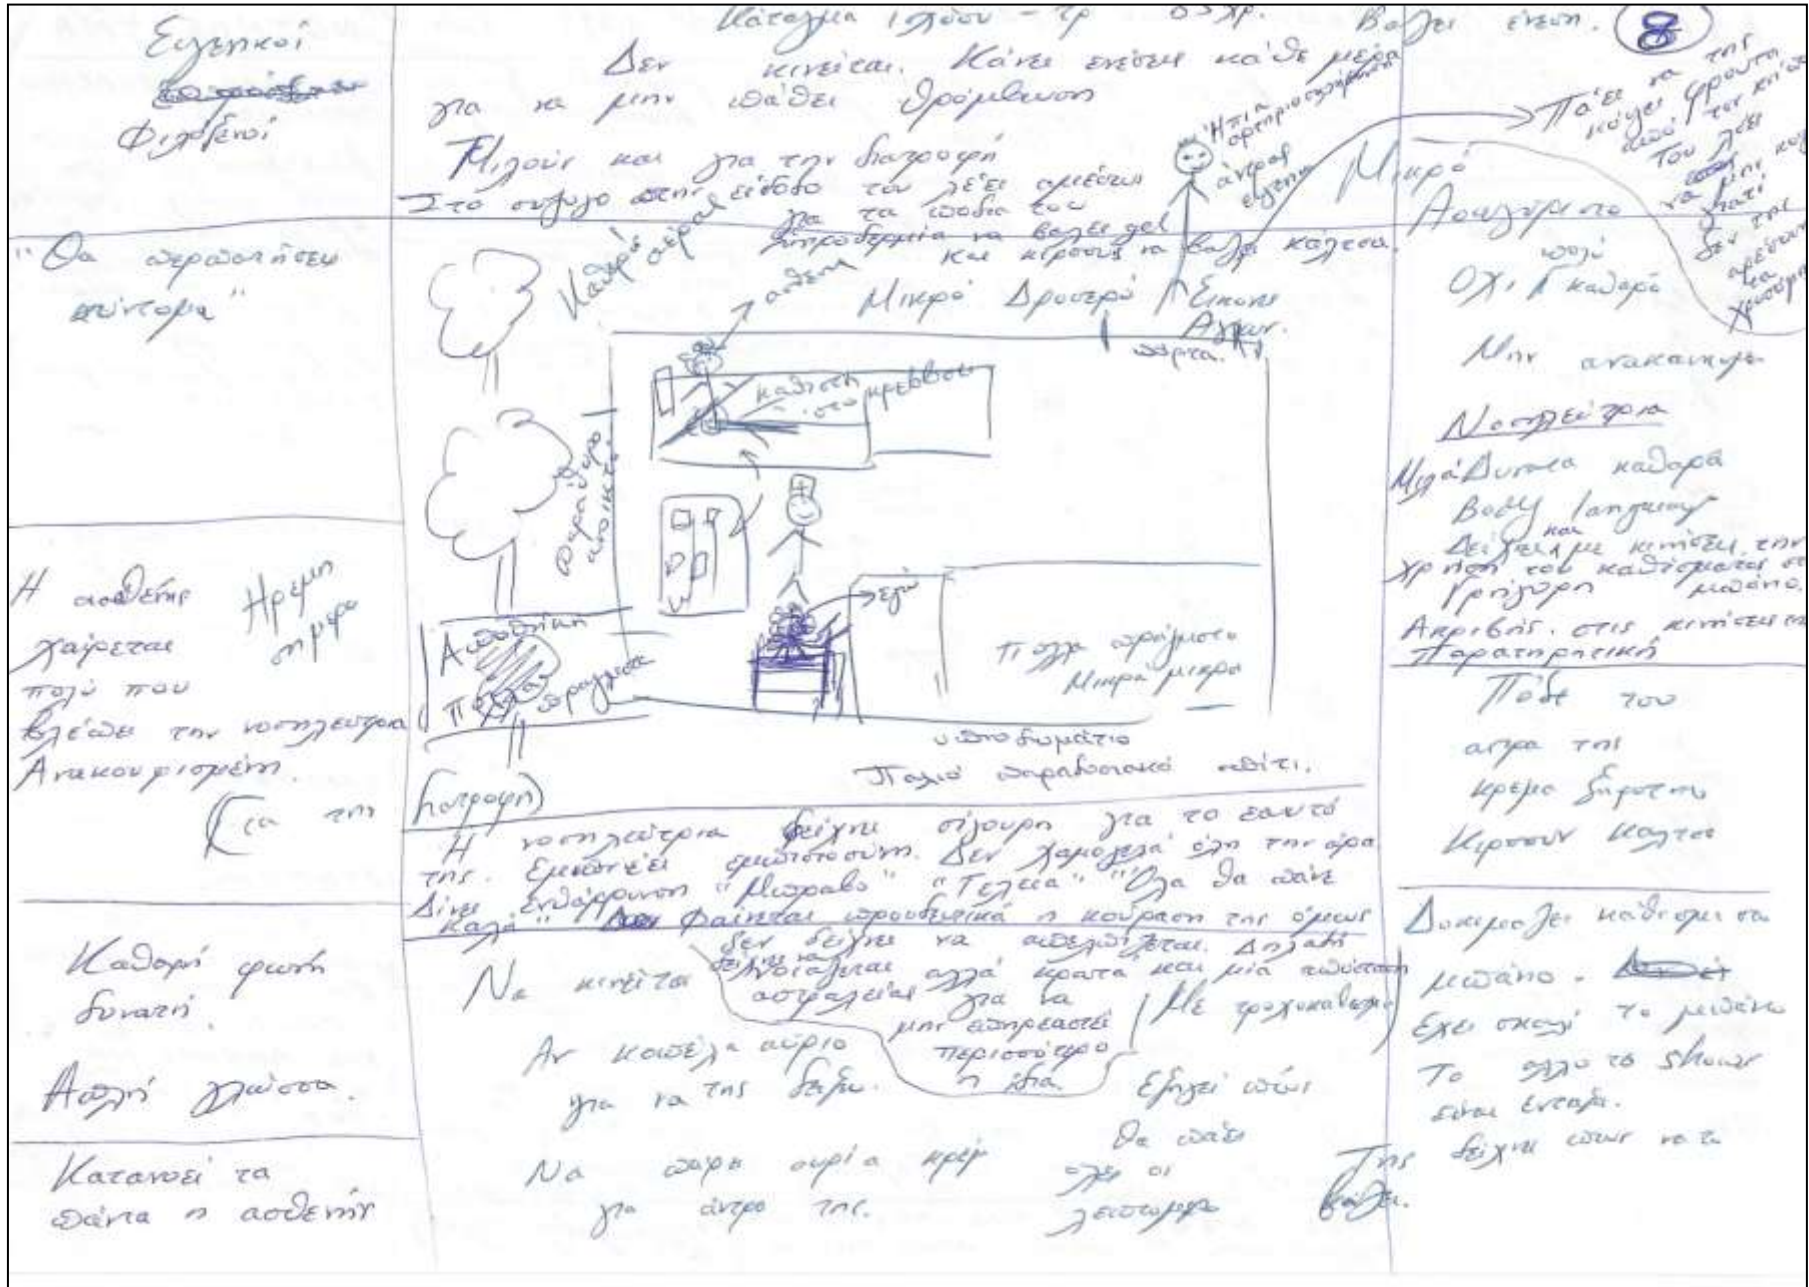 Ευγενικοί
Φιλόξενοι
"Θα περπατήσεις
σύντομα"
Η ασθενής
χαίρεται
πολύ που
βλέπει την νοσηλεύτρια
Ανακουφισμένη.
Ήρεμη
σήμερα
Καθαρή φωνή
δυνατή.
Απλή γλώσσα.
Κατανοεί τα
πάντα η ασθενής
Κάταγμα ισχίου - 83χρ. Βάζει ένεση. 8
Δεν κινείται. Κάνει ενέσεις κάθε μέρα
για να μην πάθει θρόμβωση
Μιλούν και για την διατροφή
Στο σύζυγο στην είσοδο του λέει αμέσως
για τα πόδια του
ξηροδερμία να βάλει gel
και κιρσούς να βάλει κάλτσα.
Ήπια
άντρας
Καθαρός
αέρας
ασθενή
Μικρό Δροσερό Εικόνες
Αγίων.
πόρτα.
καθιστή
στο κρεββάτι
παράθυρο
ανοικτό
εγώ
Αποθήκη
Πολλά πράγματα
Πολλά πράγματα
Μικρά μικρά
υπνοδωμάτιο
Παλιό παραδοσιακό σπίτι.
(για την διατροφή)
Η νοσηλεύτρια δείχνει σίγουρη για το εαυτό
της. Εμπνέει εμπιστοσύνη. Δεν χαμογελά όλη την ώρα
Δίνει ενθάρρυνση "Μπράβο" "Τέλεια" "Όλα θα πάνε
καλά" Φαίνεται προοδευτικά η κούραση της όμως
δεν δείχνει να απελπίζεται. Δηλαδή
δείχνει να
νοιάζεται αλλά κρατά και μία απόσταση
ασφαλείας για να
μην επηρεαστεί
περισσότερο
η ίδια.
Να κινείται
(Με τροχοκάθισμα)
Αν κοπέλα αύριο
για να της δείξω.
Εξηγεί πώς
θα πάει
Να πάρει ουρία κρέμ
για άντρα της.
Πάει να της
κόψει φρούτα
από τον κήπο
Του λέει
να μην κόψει
γιατί
δεν της
αρέσουν
Μικρό
Όχι πολύ καθαρό
Μην ανακαιν
Νοσηλεύτρια
Μιλά Δυνατά καθαρά
Body language
Δείχνει και με κινήσεις την
χρήση του καθίσματος στο
μπάνιο.
Γρήγορη
Ακριβής στις κινήσεις της
Παρατηρητική
Πόδι του
άντρα της
κρέμα ξηρότητα
Κιρσών Κάλτσα
Δοκιμάζει κάθισμα στο
μπάνιο.
Έχει σκαλί το μπάνιο
Το άλλο το shower
είναι εντάξει.
Της δείχνει πώς να το
βάζει.